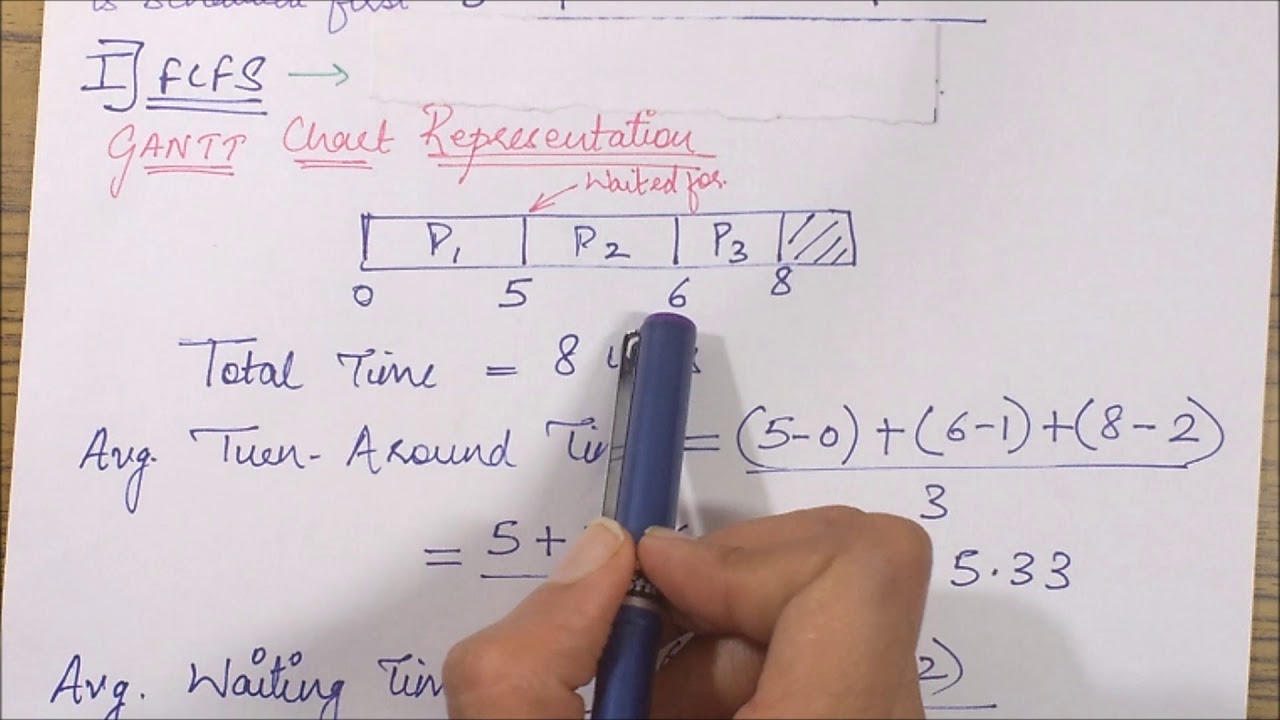 is scheduled first
I] FCFS →
GANTT Chart Representation
Waited for.
P1 P2 P3
0 5 6 8
Total Time = 8
Avg. Turn-Around = (5-0)+(6-1)+(8-2)
3
= 5+ 5.33
Avg. Waiting 2)